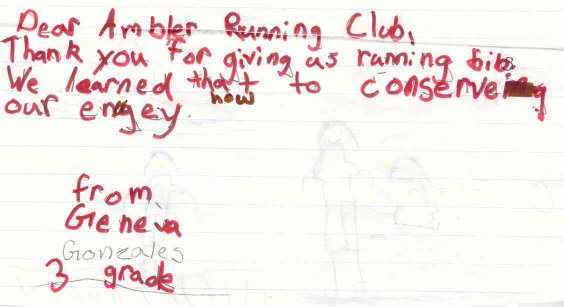 Dear Ambler Running Club,
Thank you for giving us running bibs
We learned that to conserve
how
our engey.
from
Geneva
Gonzales
3 grade